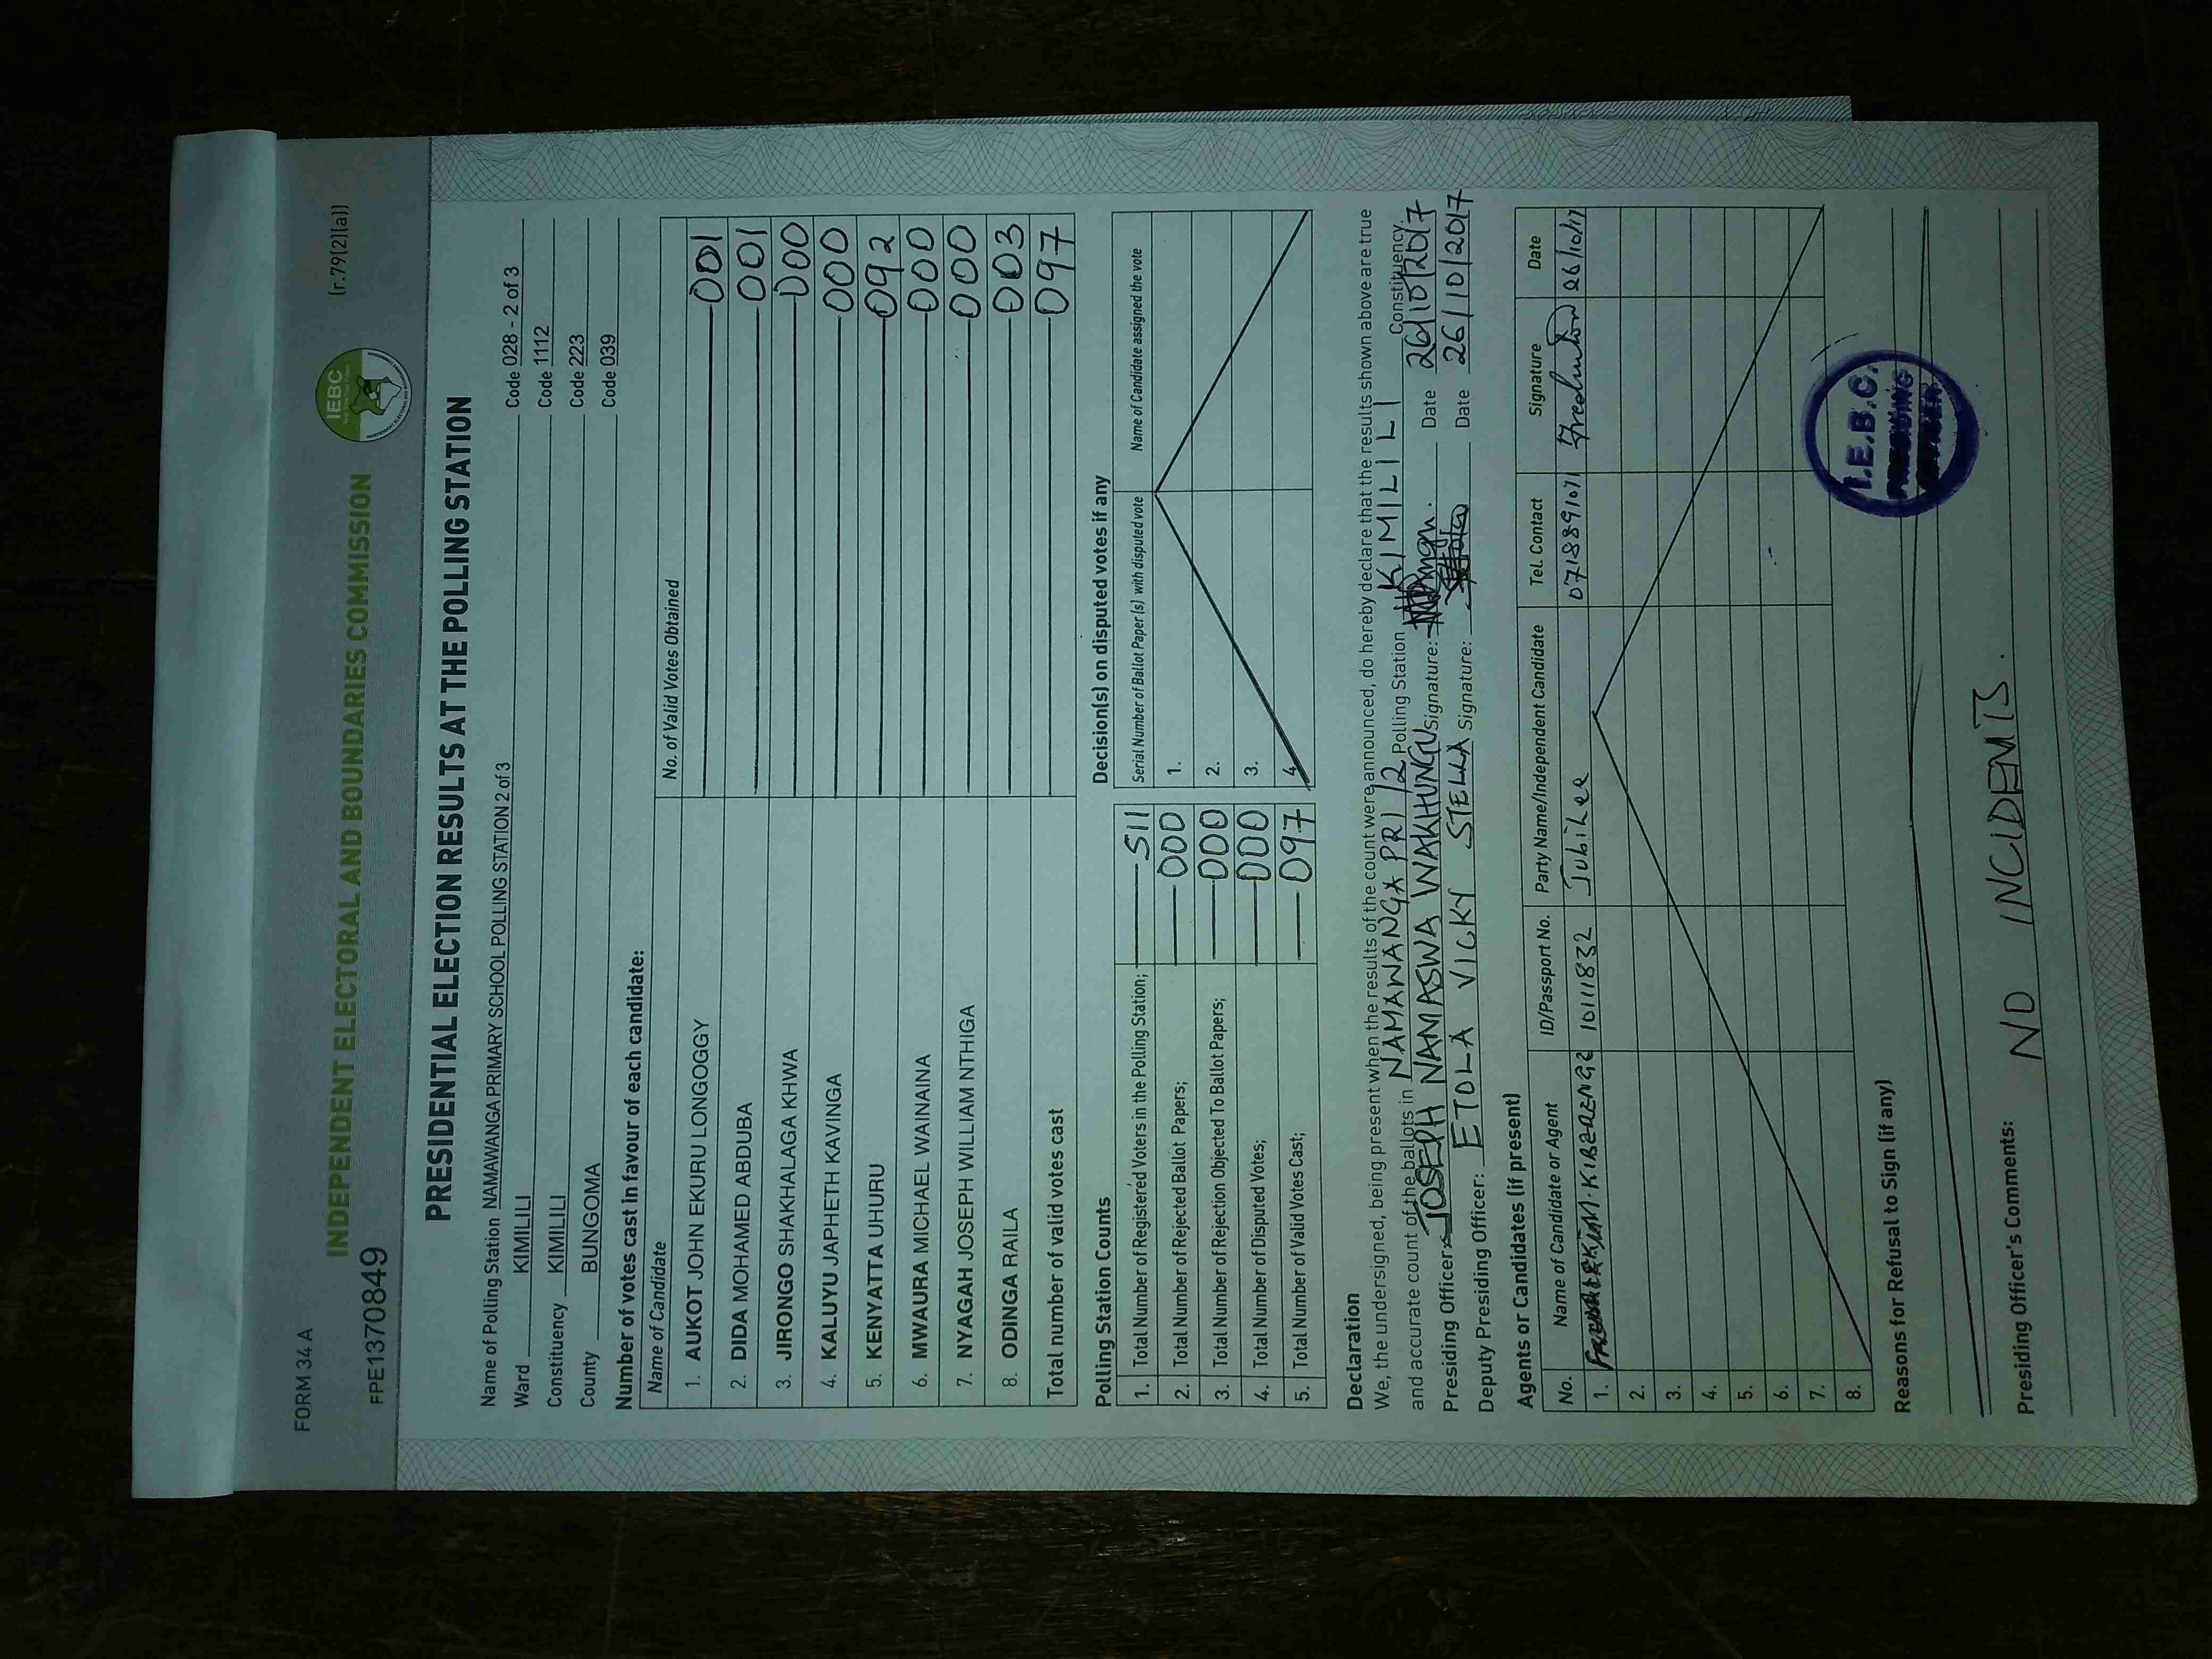 FORM 34 A
(r.79(2)(a))
INDEPENDENT ELECTORAL AND BOUNDARIES COMMISSION
IEBC
FPE1370849
PRESIDENTIAL ELECTION RESULTS AT THE POLLING STATION
Name of Polling Station NAMAWANGA PRIMARY SCHOOL POLLING STATION 2 of 3 Code 028 - 2 of 3
Ward KIMILILI Code 1112
Constituency KIMILILI Code 223
County BUNGOMA Code 039
Number of votes cast in favour of each candidate:
Name of Candidate No. of Valid Votes Obtained
1. AUKOT JOHN EKURU LONGOGGY 001
2. DIDA MOHAMED ABDUBA 001
3. JIRONGO SHAKHALAGA KHWA 000
4. KALUYU JAPHETH KAVINGA 000
5. KENYATTA UHURU 092
6. MWAURA MICHAEL WAINAINA 000
7. NYAGAH JOSEPH WILLIAM NTHIGA 000
8. ODINGA RAILA 003
Total number of valid votes cast 097
Polling Station Counts
1. Total Number of Registered Voters in the Polling Station; 511
2. Total Number of Rejected Ballot Papers; 000
3. Total Number of Rejection Objected To Ballot Papers; 000
4. Total Number of Disputed Votes; 000
5. Total Number of Valid Votes Cast; 097
Decision(s) on disputed votes if any
Serial Number of Ballot Paper (s) with disputed vote Name of Candidate assigned the vote
1.
2.
3.
4.
Declaration
We, the undersigned, being present when the results of the count were announced, do hereby declare that the results shown above are true
and accurate count of the ballots in NAMAWANGA PRI /2 Polling Station KIMILILI Constituency.
Presiding Officer: JOSEPH NAMASWA WAKHUNGU Signature: Date 26/10/2017
Deputy Presiding Officer: ETOLA VICKY STELLA Signature: Date 26/10/2017
Agents or Candidates (if present)
No. Name of Candidate or Agent ID/Passport No. Party Name/Independent Candidate Tel. Contact Signature Date
1. 10111832 Jubilee 0718891071 26/10/17
2.
3.
4.
5.
6.
7.
8.
I.E.B.C.
PRESIDING
OFFICER
Reasons for Refusal to Sign (if any)
Presiding Officer's Comments:
NO INCIDENTS.